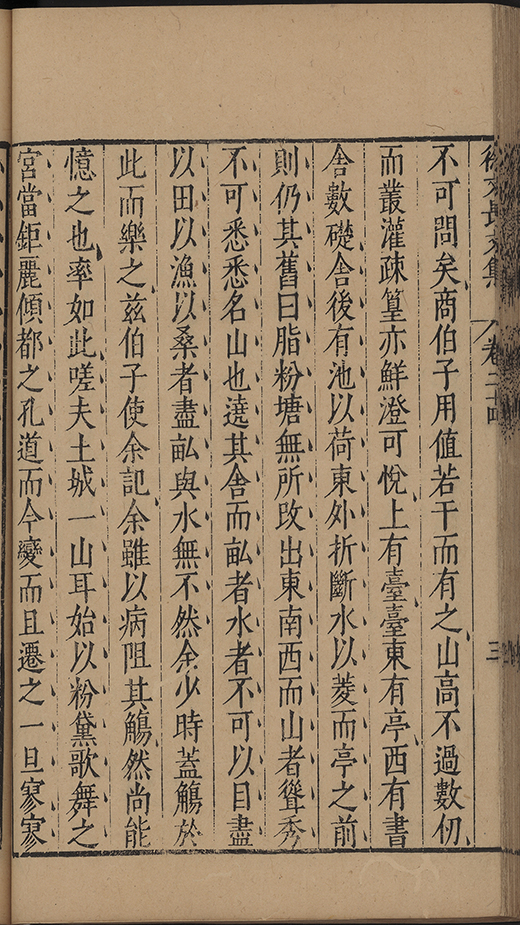 徐文長文集 卷二十四 三
不可問矣商伯子用值若干而有之山高不過數仞
而叢灌疎篁亦鮮澄可悅上有臺臺東有亭西有書
舍數礎舍後有池以荷東外折斷水以菱而亭之前
則仍其舊曰脂粉塘無所攺出東南西而山者聳秀
不可悉悉名山也遶其舍而畆者水者不可以目盡
以田以漁以桑者盡畆與水無不然余少時蓋觴於
此而樂之兹伯子使余記余雖以病阻其觴然尚能
憶之也率如此嗟夫土城一山耳始以粉黛歌舞之
宮當鉅麗傾都之孔道而今變而且遷之一旦寥寥